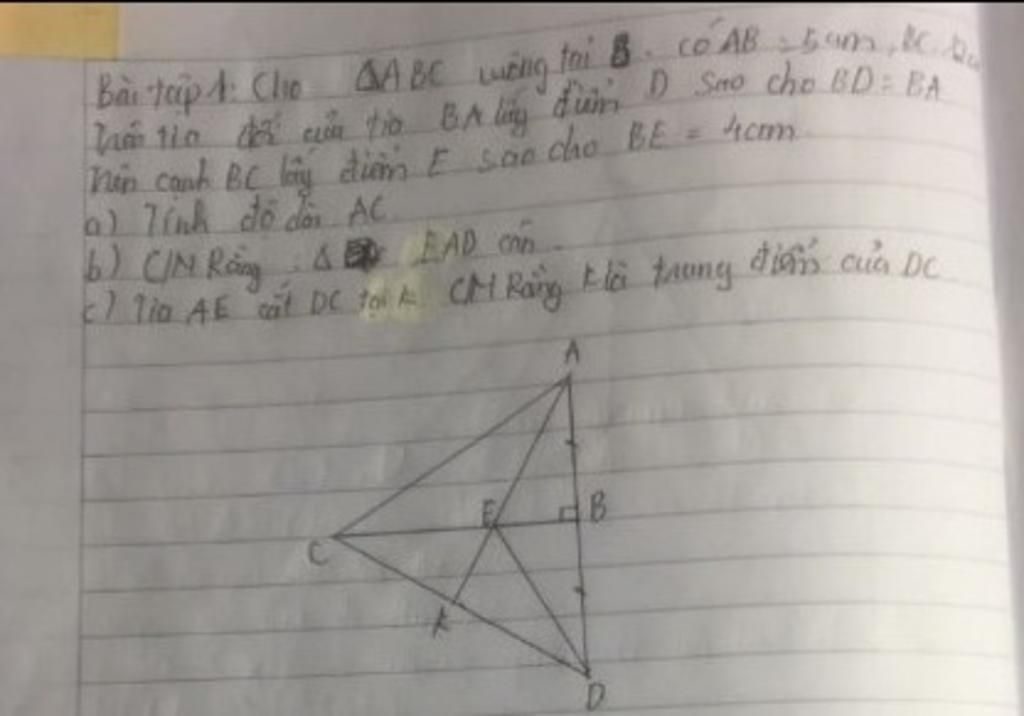 Bài tập 1: Cho ΔABC vuông tại B. có AB = 5cm, BC
trên tia đối của tia BA lấy điểm D sao cho BD = BA
trên cạnh BC lấy điểm E sao cho BE = 4cm
a) Tính độ dài AC
b) C/M Rằng: Δ EAD cân.
c) Tia AE cắt DC tại K CM Rằng K là trung điểm của DC
A
E
B
C
K
D